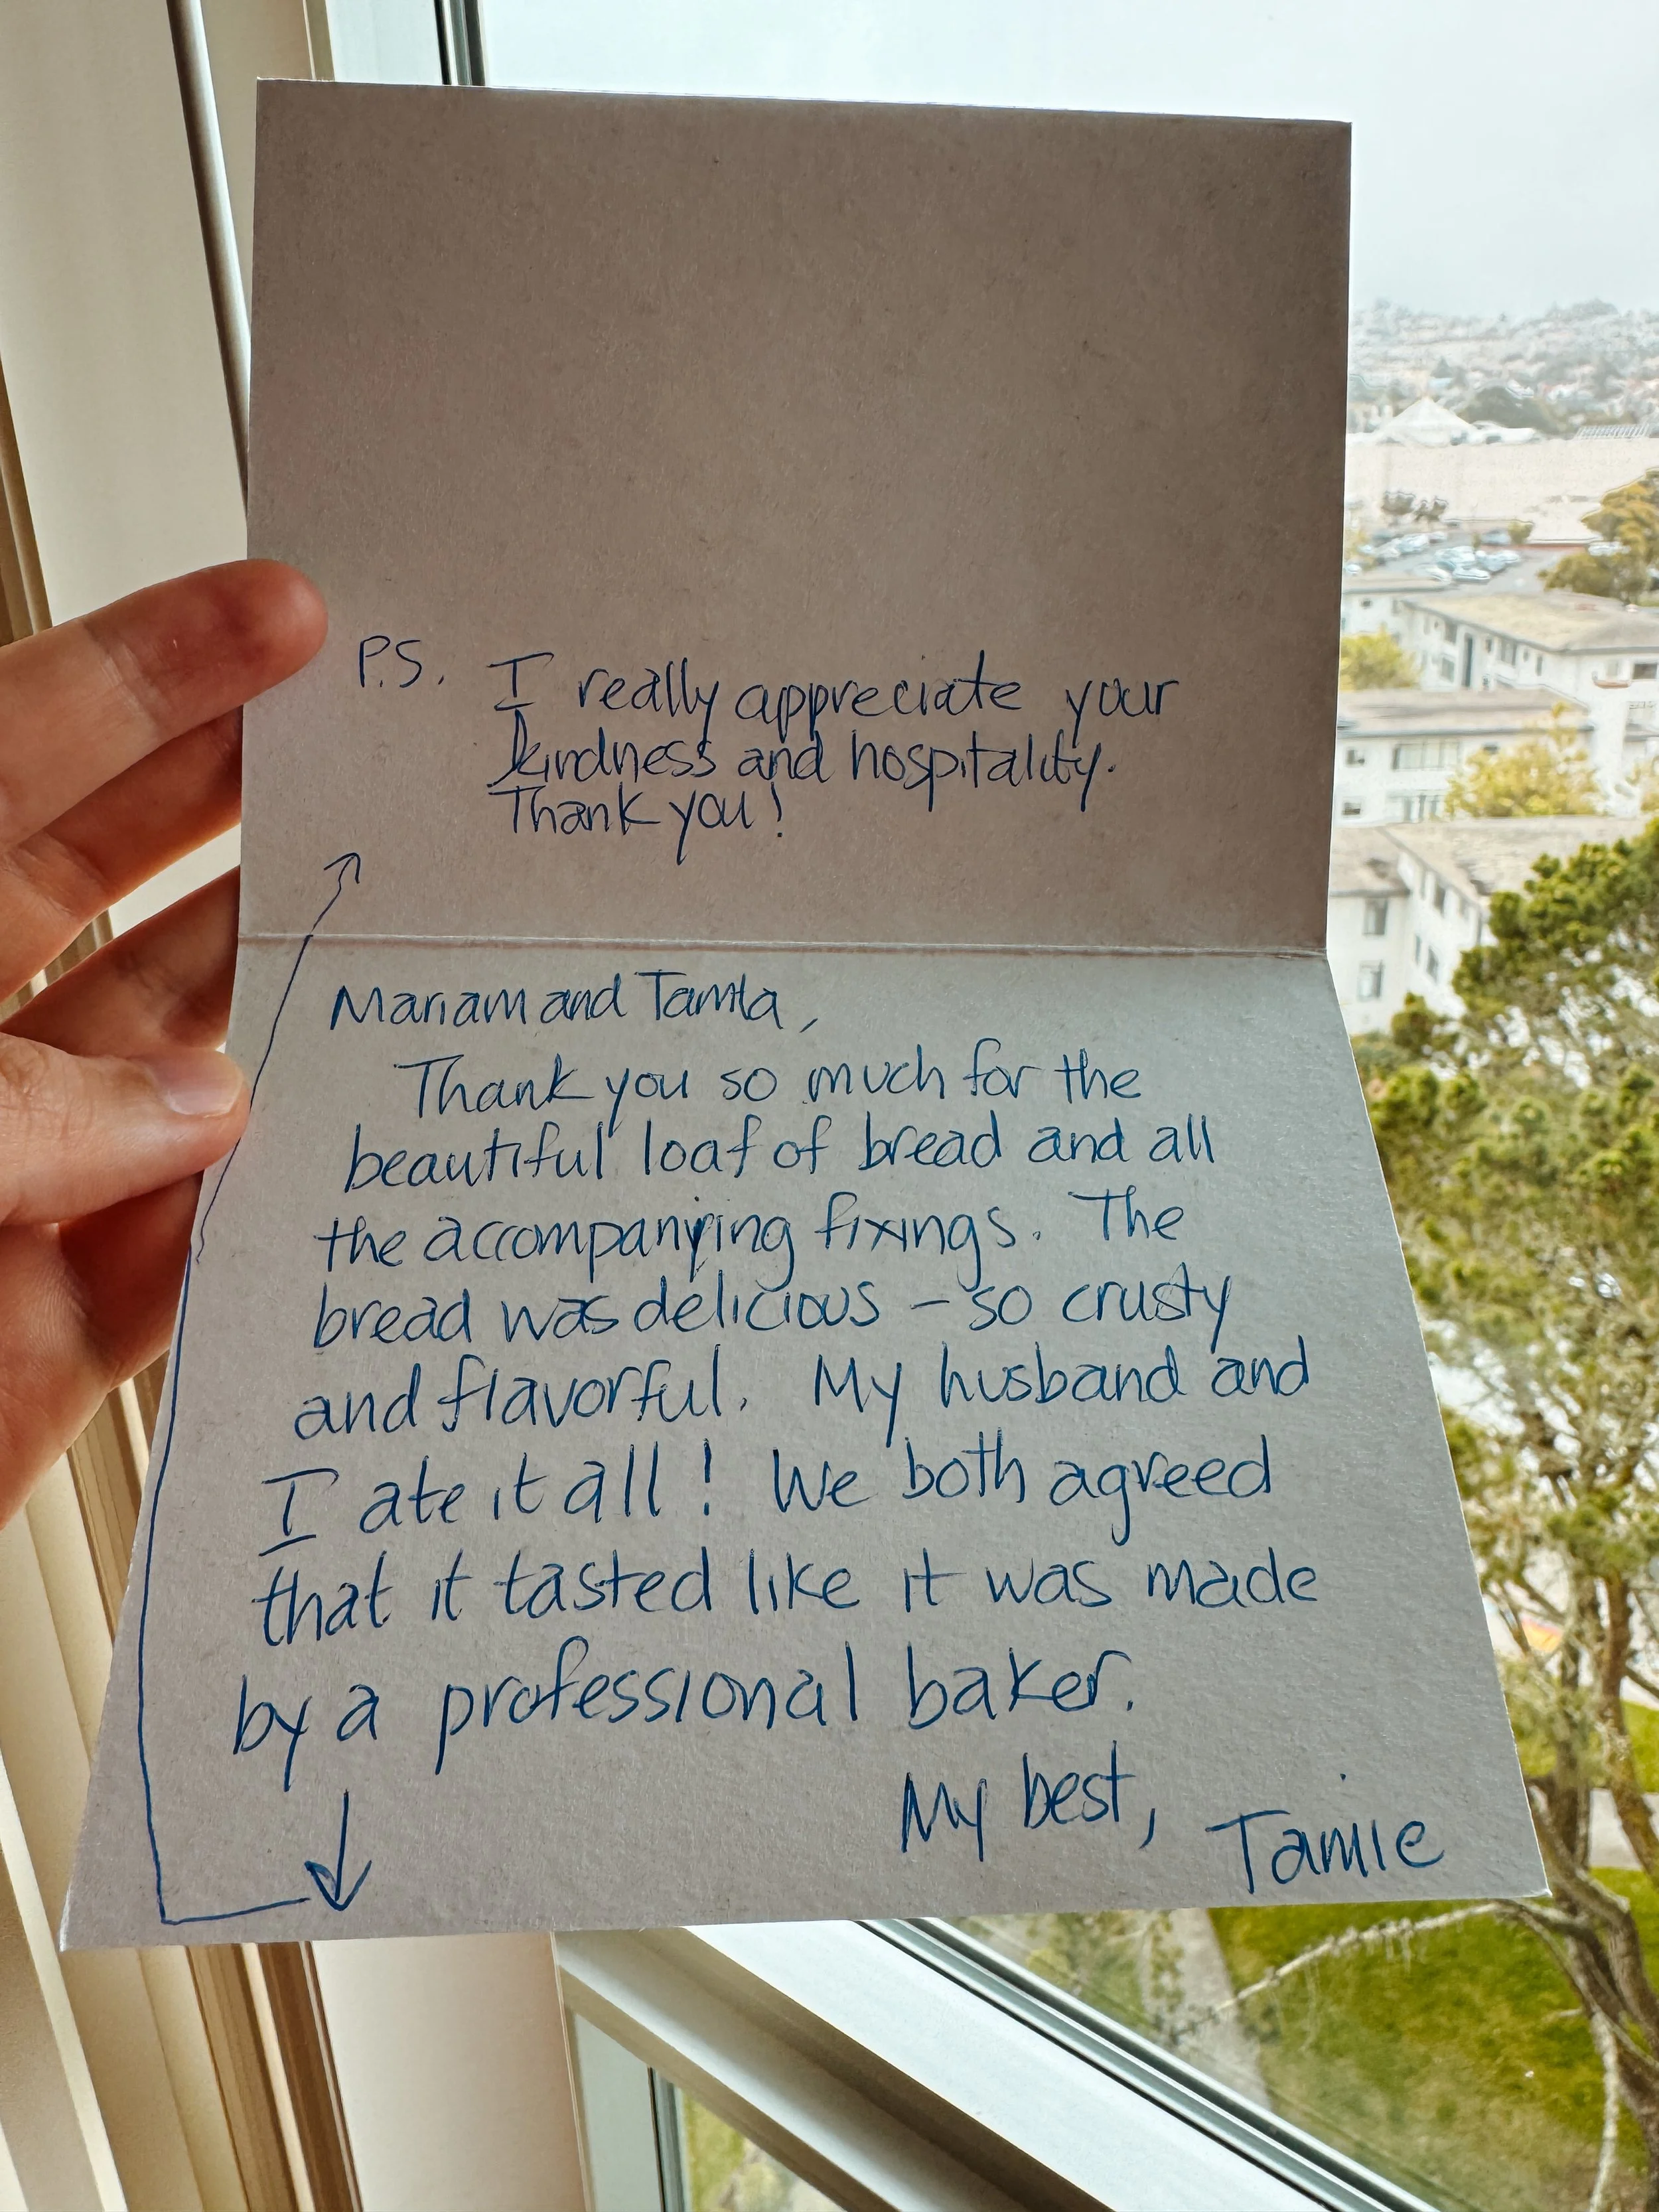 P.S. I really appreciate your
kindness and hospitality.
Thank you!
Mariam and Tamta,
Thank you so much for the
beautiful loaf of bread and all
the accompanying fixings. The
bread was delicious - so crusty
and flavorful. My husband and
I ate it all! We both agreed
that it tasted like it was made
by a professional baker.
My best, Tamie